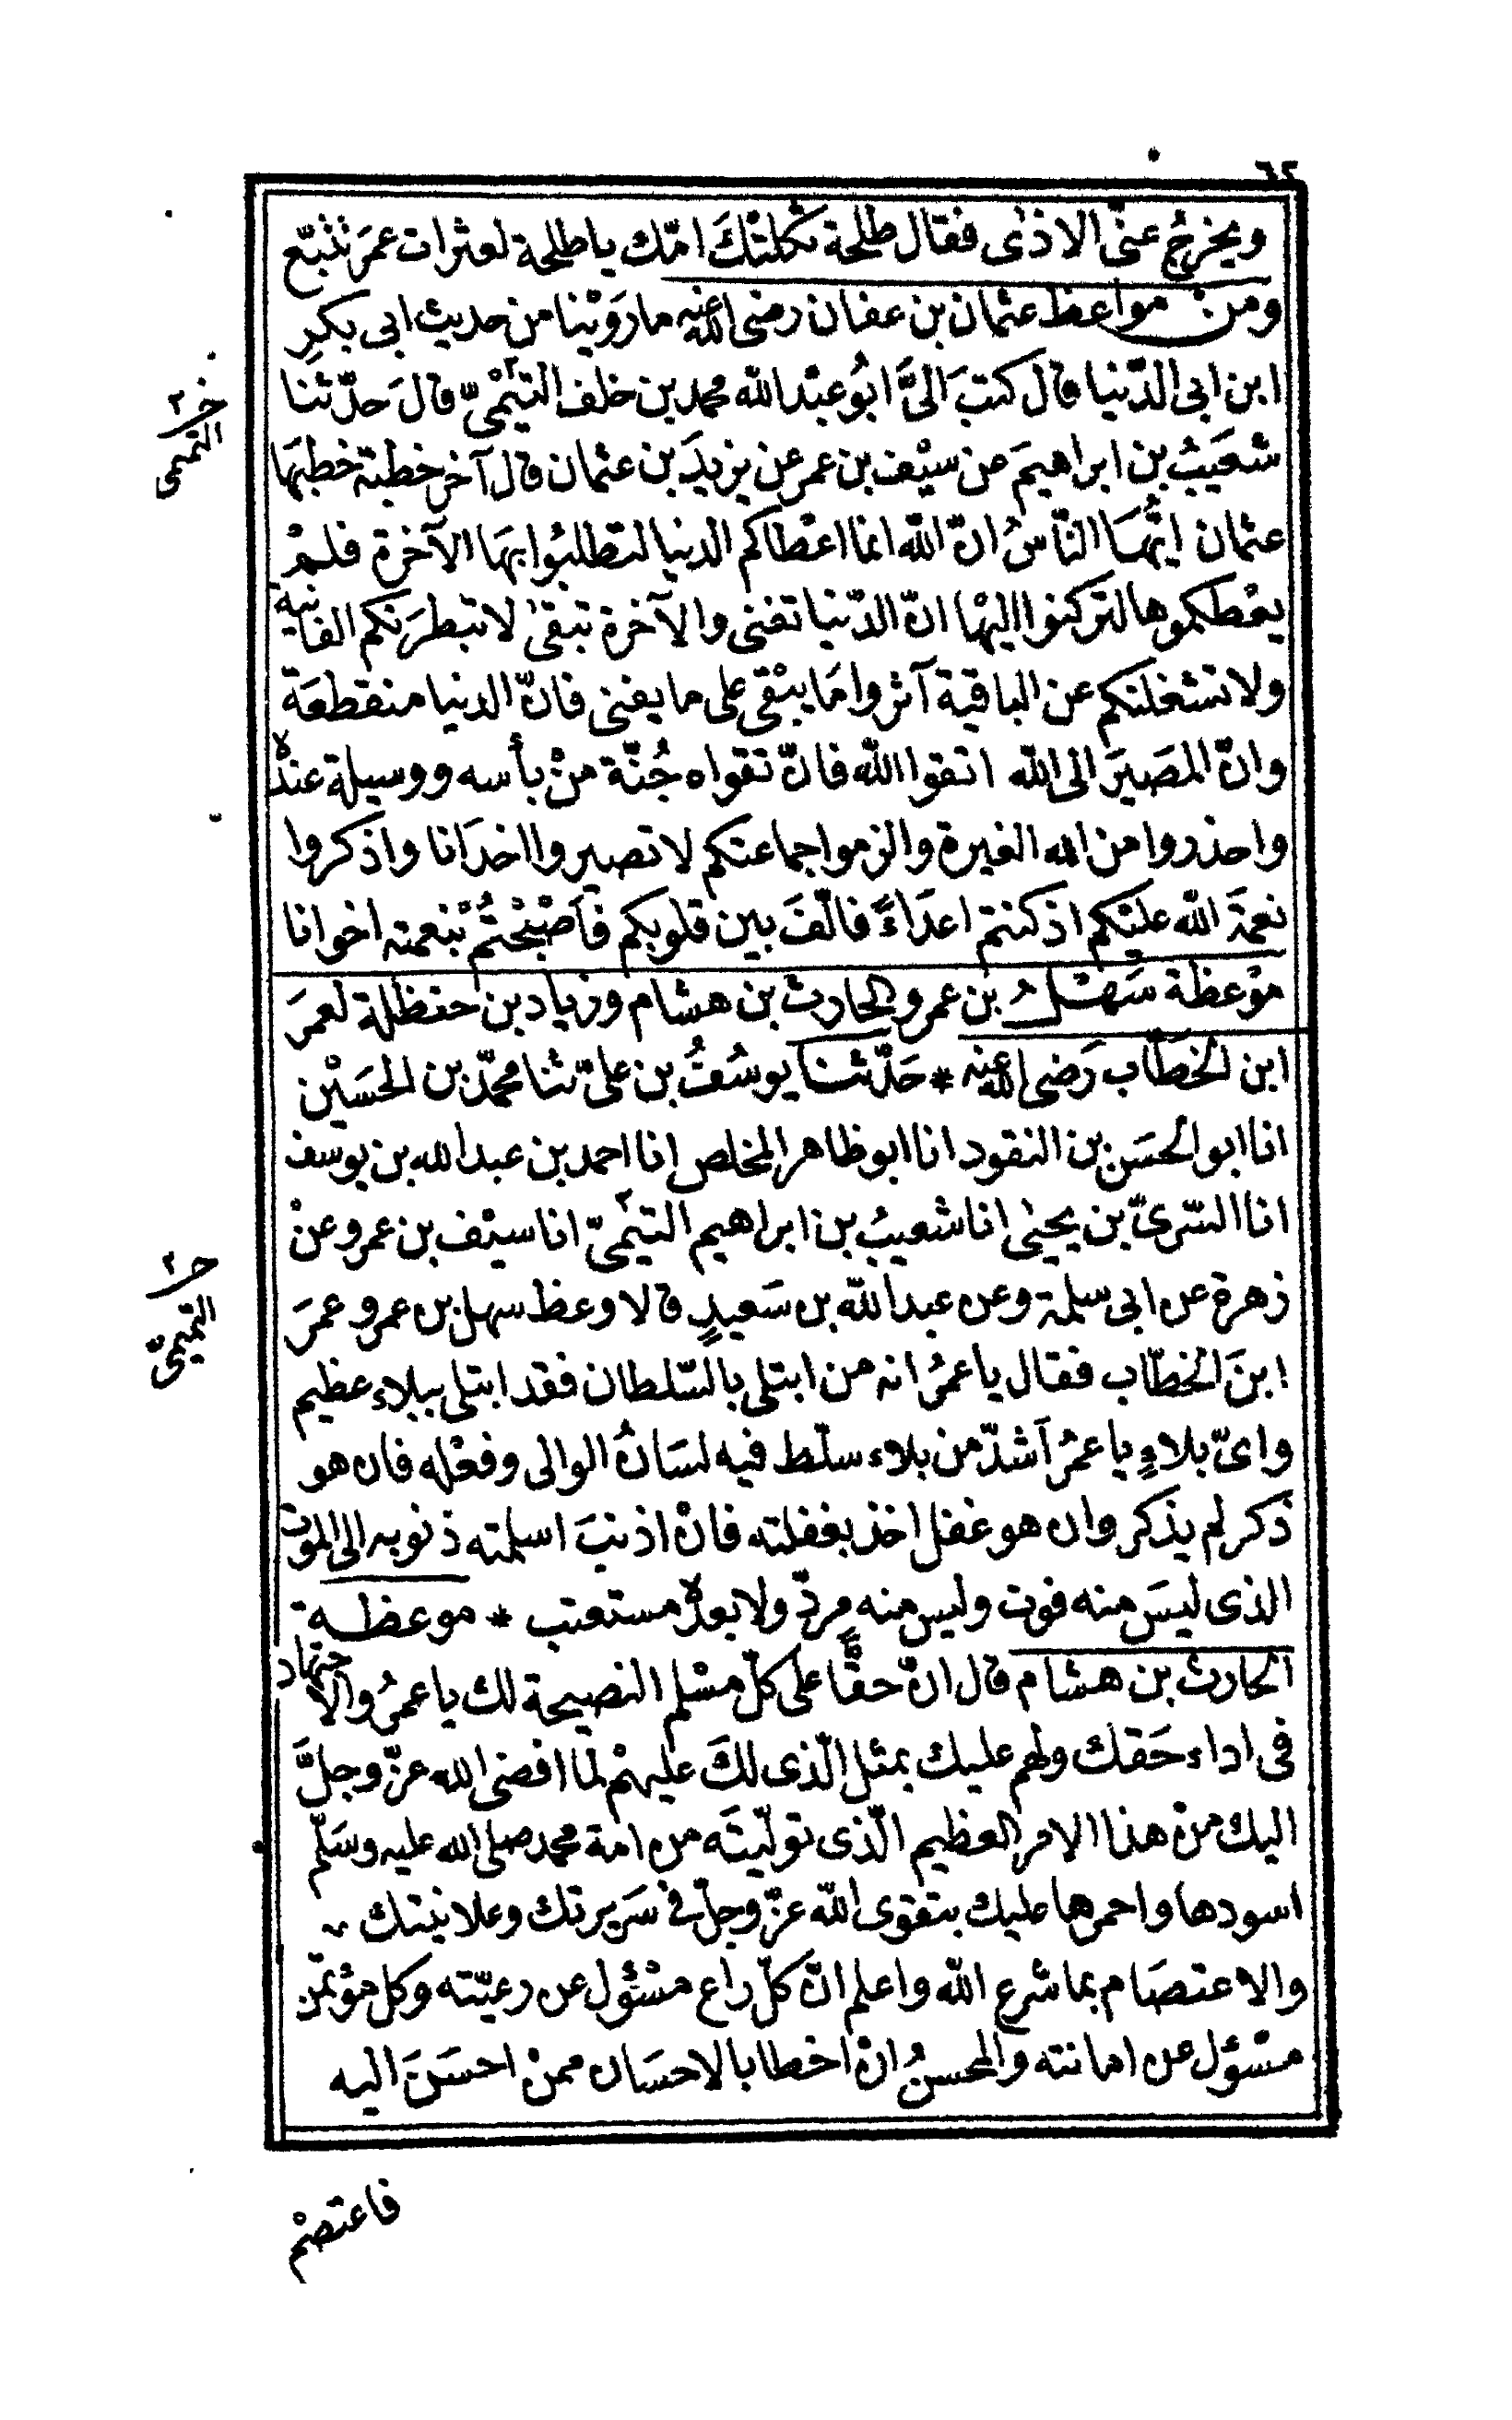 ٦٢
ويخرجُ عنى الاذى فقال طلحة ثكلتْكَ امّك ياطلحة لعثرات عمرَ تتبّع
ومن مواعظ عثمان بن عفان رضى الله عنه ما روَيْنا من حديث ابى بكرٍ
ابن ابى الدّنيا قال كتبَ الىَّ ابُو عبْد الله محمد بن خلف التيْمىّ قالَ حدّثنا
شعَيبُ بن ابراهيمَ عن سيْف بن عمر عن يزيدَ بن عثمان قال آخر خطبة خطبهَا
عثمان ايّهَا النّاسُ انّ الله انما اعْطاكم الدنيا لتطلبُوا بهَا الآخرة فلمْ
يعْطكموها لتركنوا اليْها انّ الدّنيا تفنى والآخرة تبقىٰ لا تبطرَنكم الفانية
ولا تشغلنكم عن الباقية آثروا مَا يبْقى على ما يفنى فانّ الدنيا منقطعَة
وانّ المصَيرَ الى الله اتقوا الله فانّ تقواه جُنّة منْ بأسه ووسيلة عندهُ
واحذروا من الله الغيرة والزموا جماعتكم لا تصيروا اخدَانا واذكروا
نعمةَ الله عليْكم اذ كنتم اعدَاءً فالّفَ بين قلوبكم فأصْبحْتُمْ بْنعمته اخوانا
موْعظة سَهْلُ بن عمرو والحارث بن هشام وزياد بن حنظلة لعمرَ
ابن الخطّاب رَضى الله عنه * حَدّثنا يوسُفُ بن علىّ ثنا محمّد بن الحسَيْن
انا ابو الحسَن بن النقود انا ابو ظاهر المخلص انا احمد بن عبد الله بن يوسف
انا السّرىّ بن يحيىٰ انا شعيبُ بن ابراهيم التيْمىّ انا سيْف بن عمرو عنْ
زهرة عن ابى سلمة وعن عبد الله بن سَعيدٍ قالا وعظ سهل بن عمرو عمرَ
ابنَ الخطّاب فقال يا عمرُ انه من ابتلى بالسّلطان فقد ابتلى ببلاء عظيم
واىّ بلاءٍ يا عمرُ آشدّ من بلاء سلّط فيه لسَانُ الوالى وفعْله فان هو
ذكر لم يذكر وان هو غفل اخذ بغفلته فانْ اذنبَ اسلمته ذنوبه الى الموت
الذى ليسَ منه فوت وليس منه مردّ ولا بعدهُ مستعتب * موعظة
الحارث بن هشام قال انّ حقًّا على كلّ مسْلم النصيحة لك يا عمرُ والاجتهاد
فى اداء حَقك ولهم عليك بمثل الّذى لكَ عليهْم لما افضى الله عزّ وجلَّ
اليك منْ هذا الامر العظيم الّذى توليّتَه من امة محمد صلى الله عليه وسَلّم
اسودها واحمرها عليك بتقوى الله عزّ وجلّ فى سَريرتك وعلانيتك
والاعتصَام بما شرع الله واعلم انّ كلّ راع مسْئول عن رعيّته وكل مؤتمن
مسْؤل عن امانته والمحسنُ انْ اخطا بالاحسَان ممنْ احسَنَ اليه
فاعتصمْ
خ ٢
التميمى
خ ٢
التميمىّ